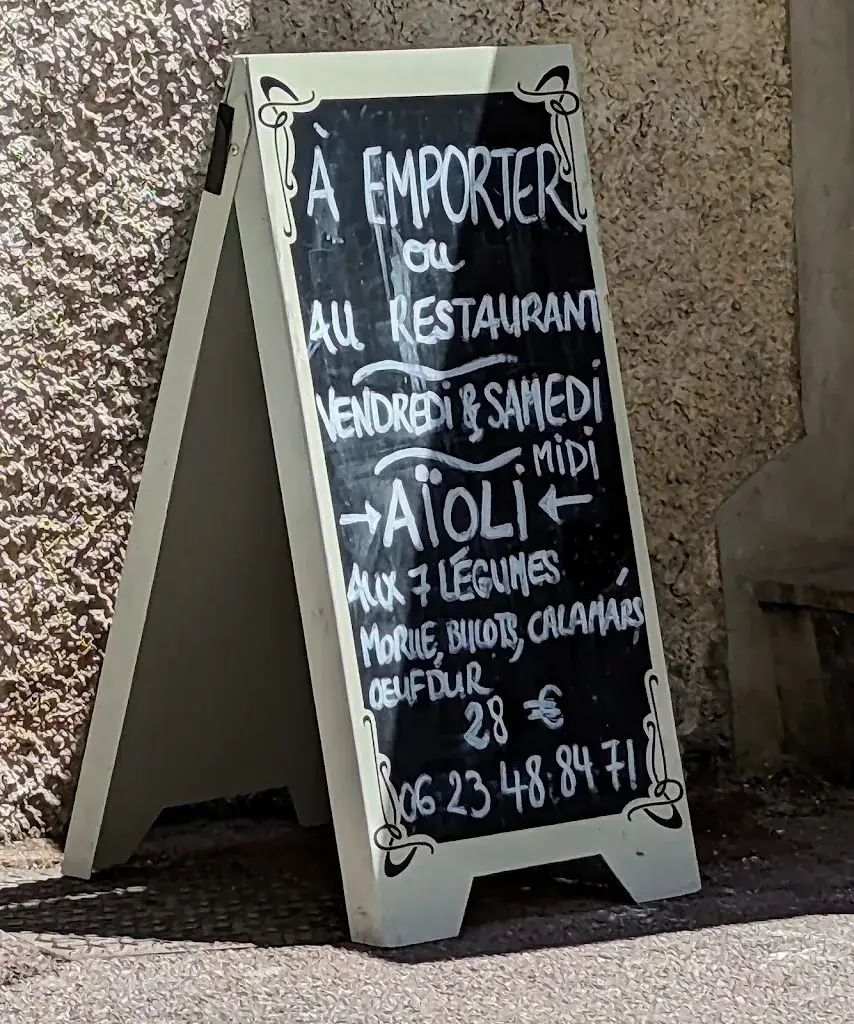 À EMPORTER
ou
AU RESTAURANT
VENDREDi & SAMEDi
MiDi
→ AÏOLi ←
AUX 7 LÉGUMES
MORUE, BULOTS, CALAMARS
OEUF DUR
28 €
06 23 48 84 71